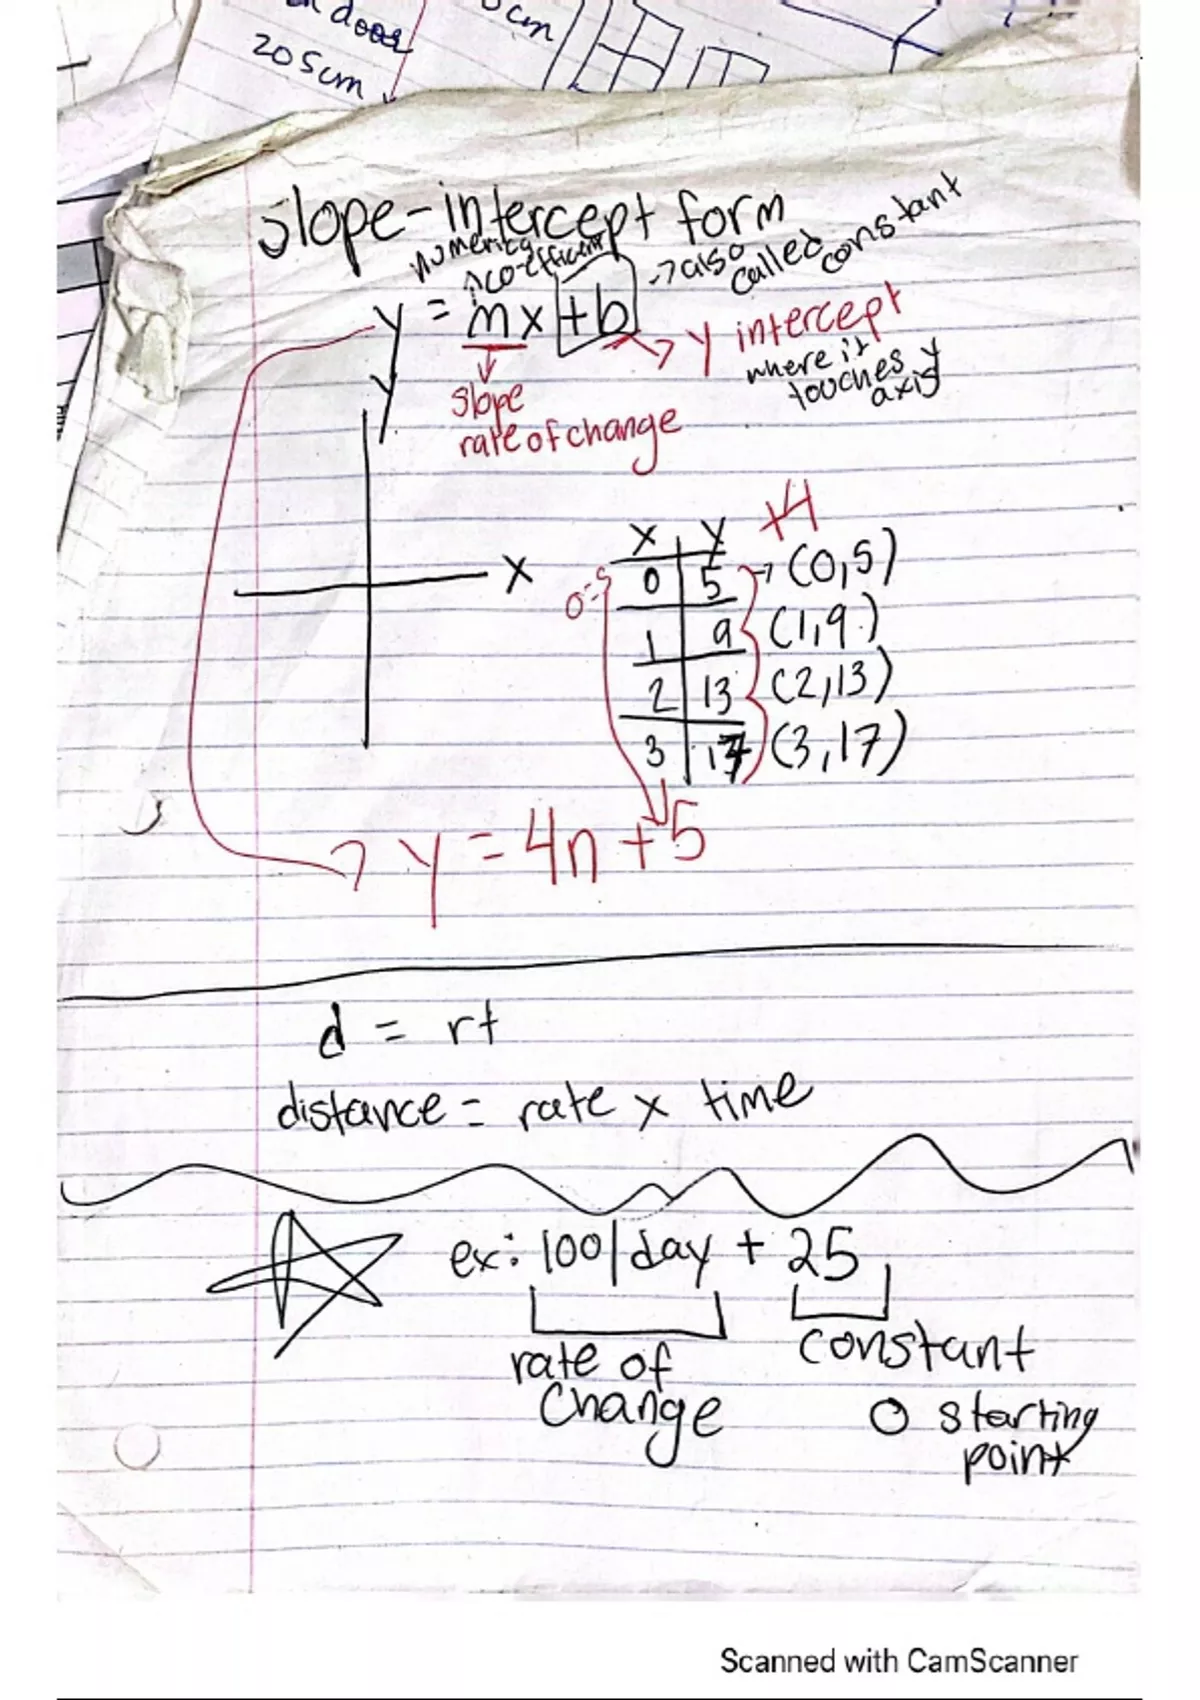 door
205cm
cm
slope-intercept form
numerical
co-efficient
→ also
called
constant
y = mx + b
→ y intercept
where it
touches y
axis
slope
rate of change
y
x
+4
x y
0 5 → (0,5)
0=5
1 9 (1,9)
2 13 (2,13)
3 17 (3,17)
→ y = 4n + 5
d = rt
distance = rate x time
ex: 100/day + 25
rate of
change
constant
O starting
point
Scanned with CamScanner